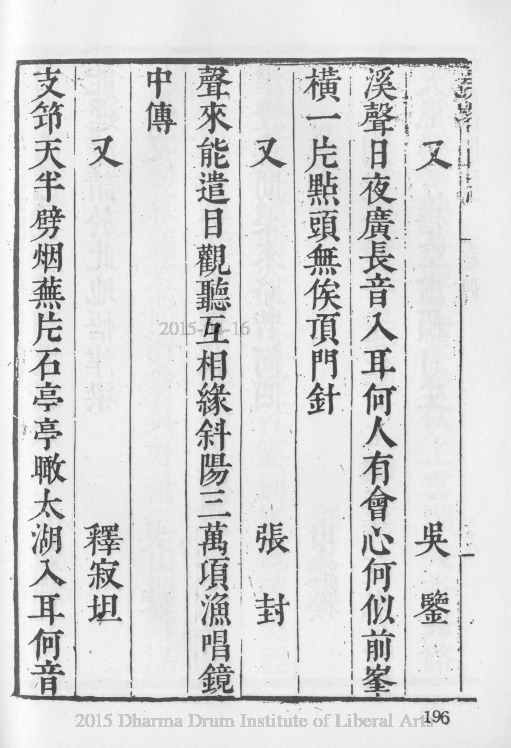 又 吳鑒
溪聲日夜廣長音入耳何人有會心何似前峯
橫一片點頭無俟頂門針
又 張封
聲來能遣目觀聽互相緣斜陽三萬項漁唱鏡
中傳
又 釋寂坦
支筇天半劈烟蕪片石亭亭瞰太湖入耳何音
2015-04-16
196
2015 Dharma Drum Institute of Liberal Arts